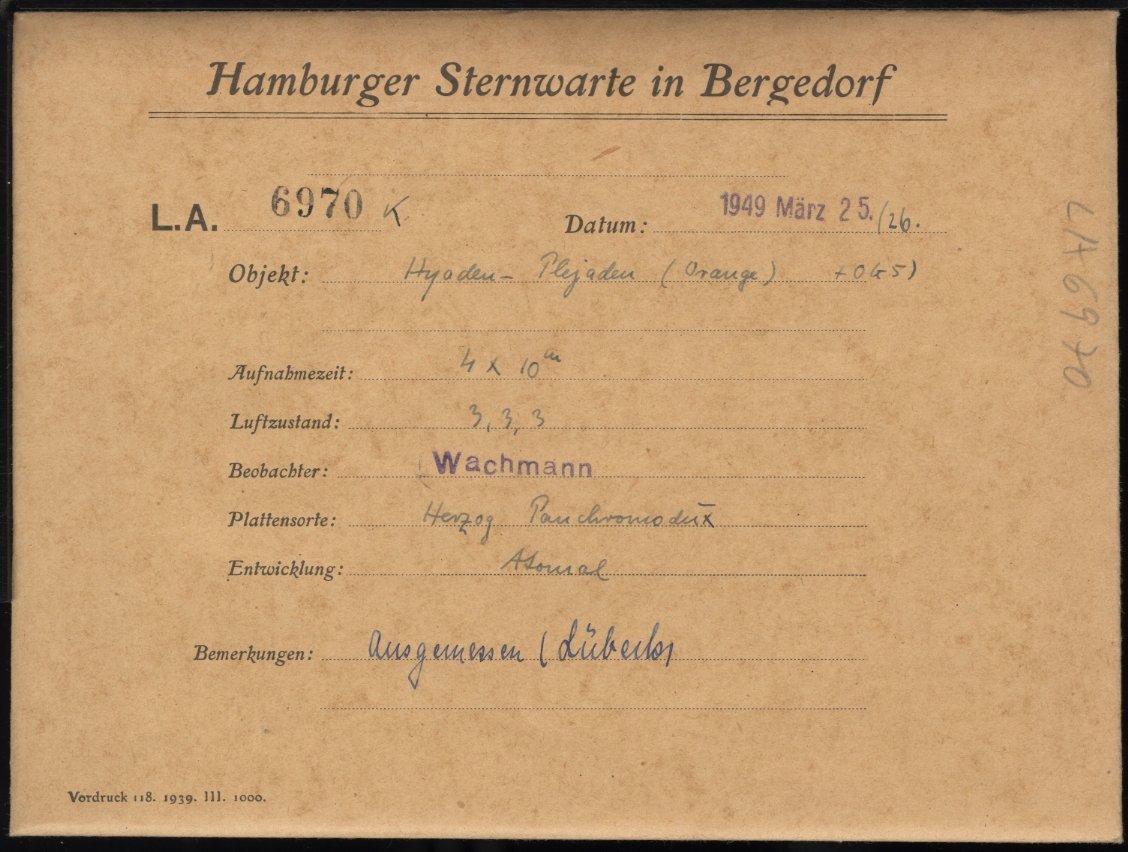 Hamburger Sternwarte in Bergedorf
L.A. 6970 K. Datum: 1949 März 25./26.
Objekt: Hyaden - Plejaden (Orange) + OG5)
Aufnahmezeit: 4 x 10m
Luftzustand: 3, 3, 3
Beobachter: Wachmann
Plattensorte: Herzog
Entwicklung: Atomal
Bemerkungen: Ausgemessen (Lübeck)
Vordruck 118. 1939. III. 1000.
LA 6970